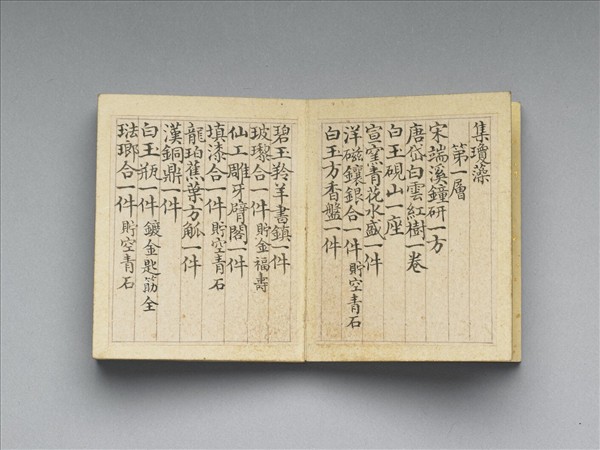 集瓊藻
第一層
宋端溪鐘硏一方
唐岱白雲紅樹一卷
白玉硯山一座
宣窯青花水盛一件
洋磁鑲銀合一件貯空青石
白玉方香盤一件
碧玉羚羊書鎮一件
玻瓈合一件貯金福壽
仙工雕牙臂閣一件
填漆合一件貯空青石
龍珀蕉葉方觚一件
漢銅鼎一件
白玉瓶一件鍍金匙筯全
琺瑯合一件貯空青石